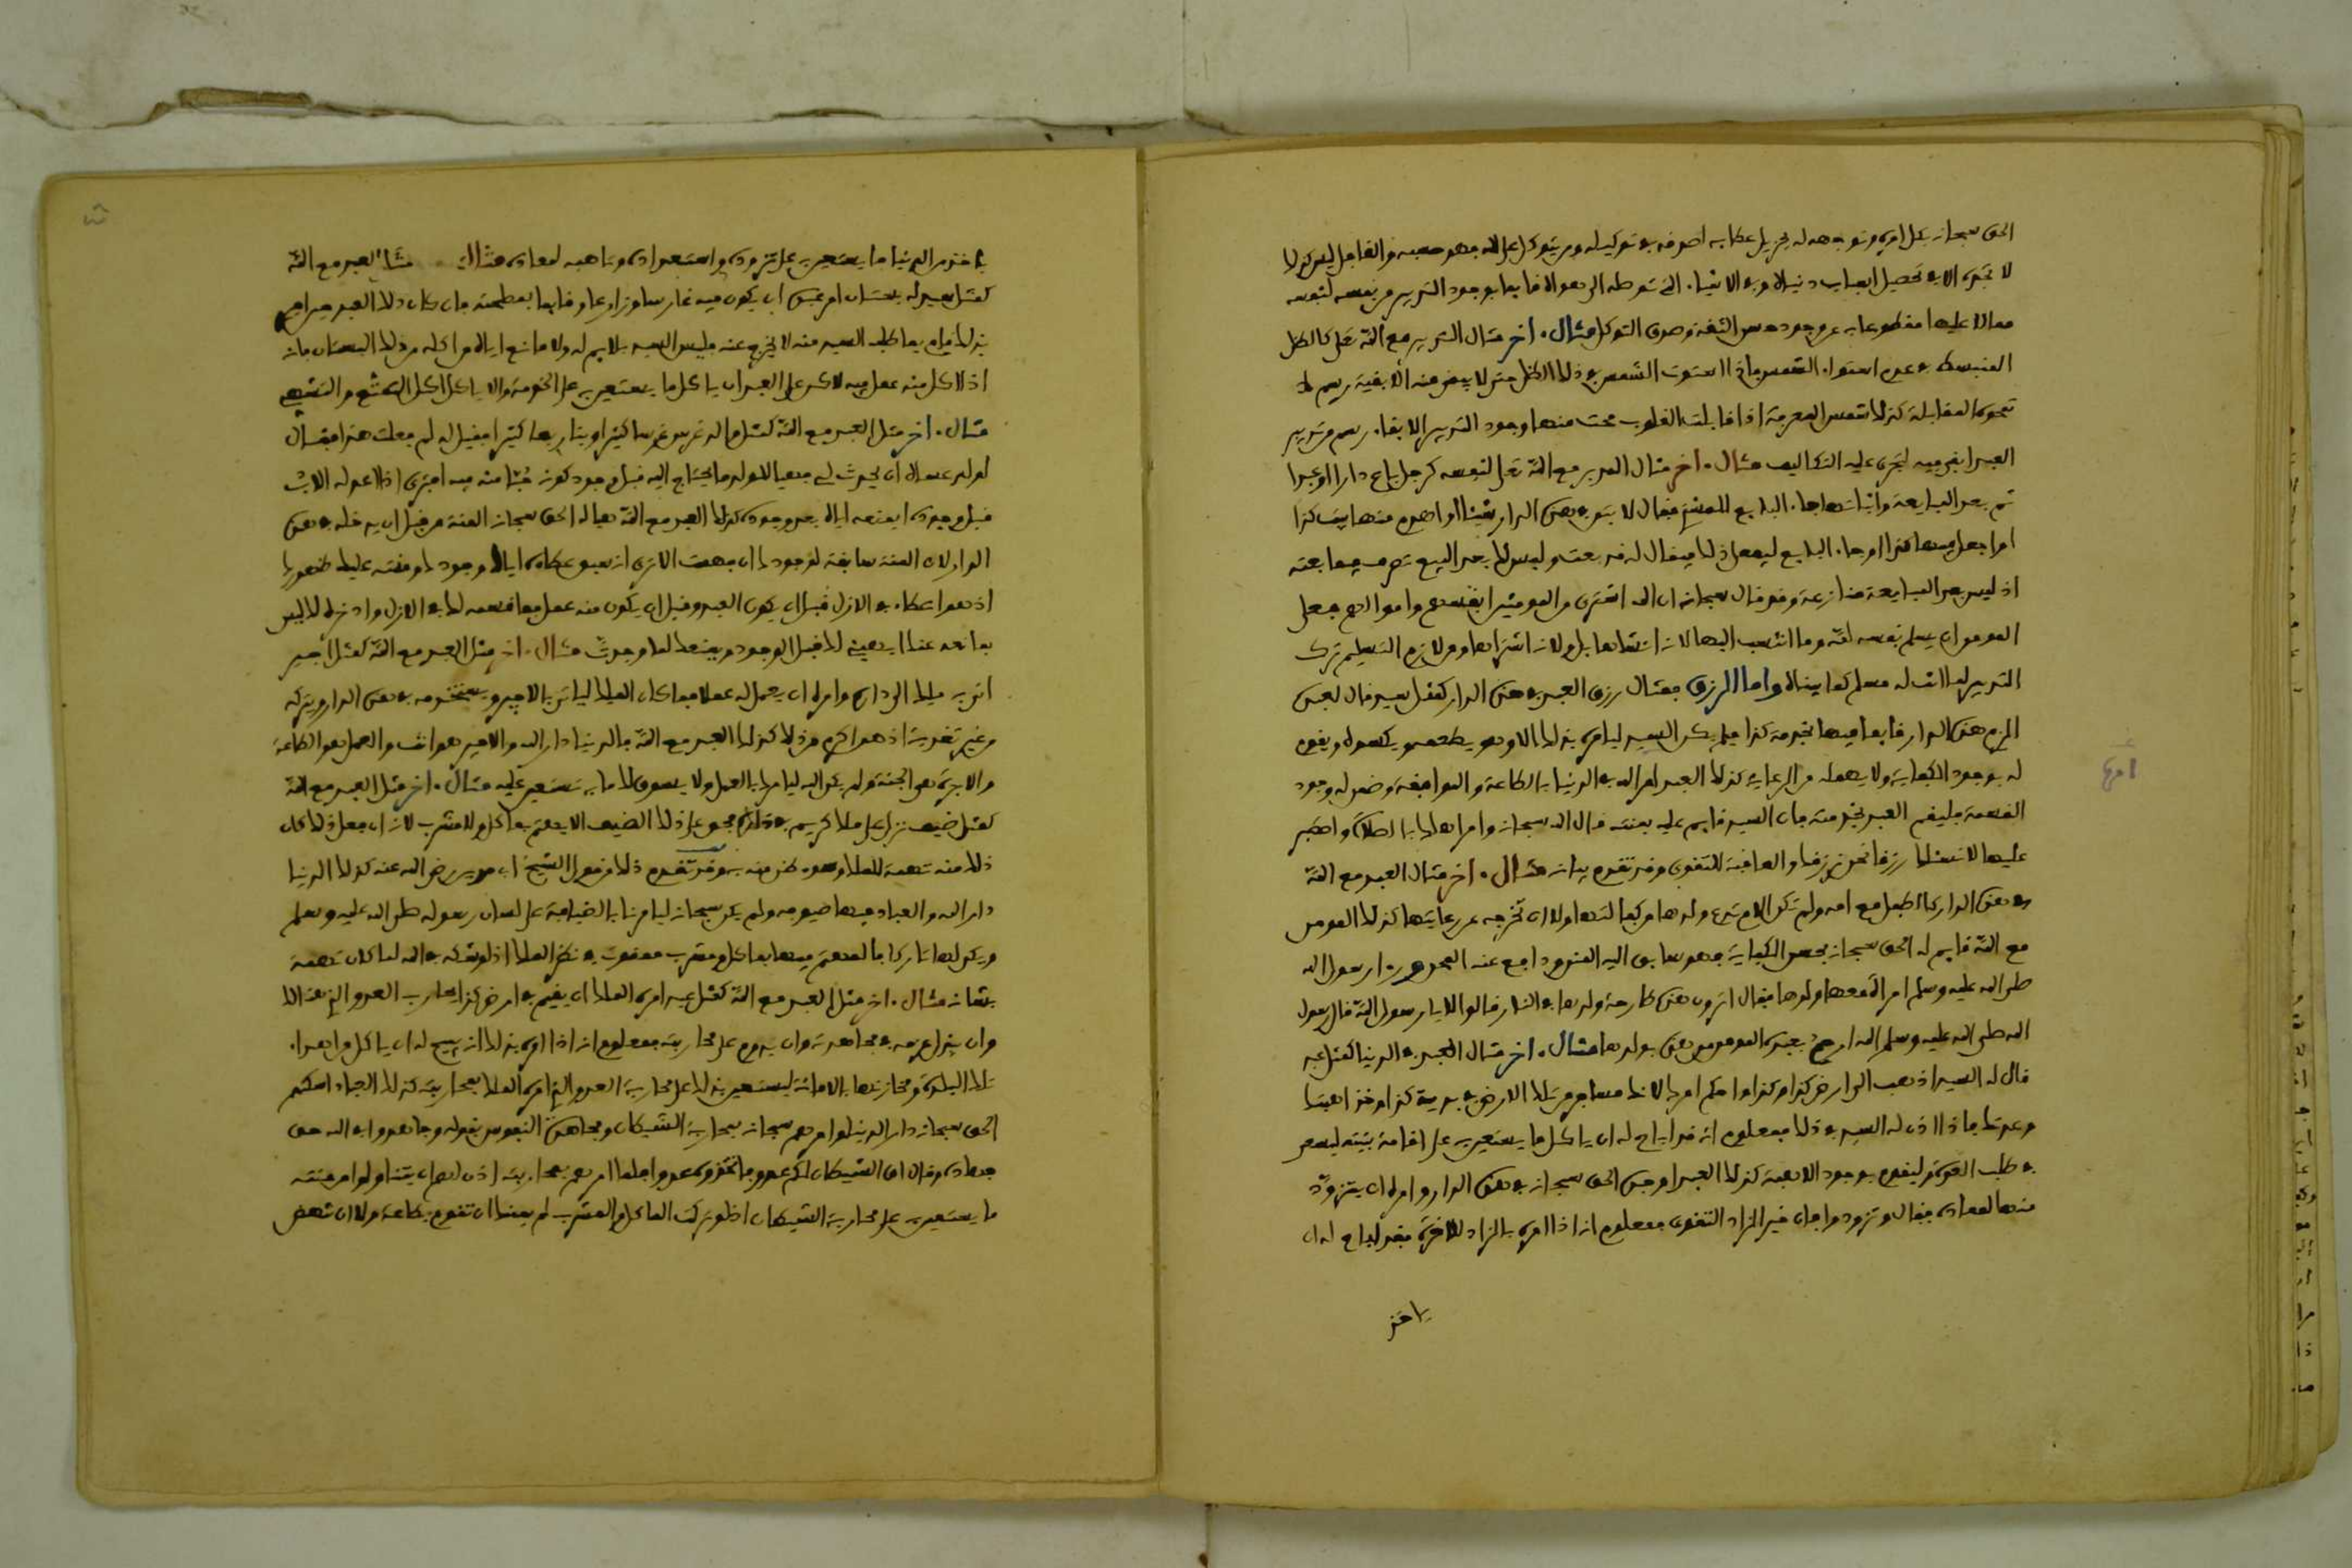 الحق سبحانه بكل امره وتوجهه له بجزيل عطايه اصدقه في توكيله ومن يتوكل على الله فهو حسبه والغافل ليس كذلك
لا تجده الا في تحصيل اسباب دنياه وفي الاشيا التي توصله الى هواه قايما بوجود التدبير من نفسه لنفسه
محالا عليها مقطوعا به عن وجود حسن الثقة وصدق التوكل مثال اخر مثال التدبير مع الله تعلى كالظل
المنبسط في عدم استوا الشمس فاذا استوت الشمس فني ذلك الظل حتى لا يبقى منه الا بقية رسم لا
تمحوه المقابلة كذلك شمس المعرفة اذا قابلت القلوب محت منها وجود التدبير الا بقا رسم من تدبير
العبد ابقى فيه ليجري عليه التكاليف مثال اخر مثال المدبر مع الله تعلى لنفسه كرجل باع دارا او عبدا
ثم بعد المبايعة واثباتها جا البايع للمشتري فقال لا تبن في هذه الدار شيئا او اهدم منها بيت كذا
او اجعل فيها كذا او جا البايع ليفعل ذلك فيقال له قد بعت وليس لك بعد البيع تصرف فيما بعته
اذ ليس بعد المبايعة منازعة وقد قال سبحانه ان الله اشترى من المومنين انفسهم واموالهم فعلى
المومن ان يسلم نفسه لله وما انتسب اليها لانه انشاها بل ولانه اشتراها ومن لازم التسليم ترك
التدبير لما انت له مسلم كما بيناه واما الرزق فمثال رزق العبد في هذه الدار كمثل سيد قال لعبده
الزم هذه الدار قايما فيها بخدمة كذا فلم يكن السيد ليامره بذلك الا وهو يطعمه ويكسوه ويقوم
له بوجود الكفاية ولا يهمله من الرعاية كذلك العبد امر الله في الدنيا بالطاعة والموافقة وضمن له وجود
القسمة فليقم العبد بخدمته فان السيد قايم عليه بمنته قال الله سبحانه وامر اهلك بالصلاة واصطبر
عليها لا نسئلك رزقا نحن نرزقك والعاقبة للتقوى وقد تقدم بيانه مثال اخر مثال العبد مع الله
في هذه الدار كالطفل مع امه ولم تكن الام تدع ولدها من كفالتها ولا ان تخرجه عن رعايتها كذلك المومن
مع الله قايم له الحق سبحانه بحسن الكفاية فهو سايق اليه المنن ودافع عنه المحن را رسول الله
صلى الله عليه وسلم امراة معها ولدها فقال اترون هذه طارحة ولدها في النار قالوا لا يا رسول الله قال رسول
الله صلى الله عليه وسلم الله ارحم بعبده المومن من هذه بولدها مثال اخر مثال العبد في الدنيا كمثل عبد
قال له السيد اذهب الى ارض كذا وكذا واحكم امرك لان تسافر من تلك الارض في برية كذا وخذ اهبتك
وعدتك فاذا اذن له السيد في ذلك فمعلوم انه قد اباح له ان ياكل ما يستعين به على اقامة بنيته ليسعى
في طلب العدة وليقوم بوجود الاهبة كذلك العبد اوجده الحق سبحانه في هذه الدار وامره ان يتزود
منها لمعاده فقال وتزودوا فان خير الزاد التقوى فمعلوم انه اذا امره بالزاد للاخرة فقد اباح له ان
ياخذ
امراة
ياخذ من الدنيا ما يستعين به على تزوده واستعداده وتاهبه لمعاده مثال مثال العبد مع الله
كمثل سيد له بستان امر عبده ان يكون فيه غارسا وزارعا وقايما بمصلحته فان كان ذلك العبد
بذلك قام بما طلب السيد منه لا يخرج عنه فليس السيد بلايم له ولا مانع اياه من اكله من ذلك البستان فانه
اذ لا كل منه عمل فيه لاكن على العبد ان ياكل ما يستعين به على الخدمة والا ياكل اكل التمتع والتشهي
مثال اخر مثل العبد مع الله كمثل والد غرس غرسا كثيرا وبنا ربعا كثيرا فقيل له لم فعلت هذا فقال
لولد عساه ان يحدث لي فهيا للولد ما يحتاج اليه قبل وجود كونه حبا منه فيه افترى اذا اعد له الاب
قبل وجوده ايمنعه اياه بعد وجوده كذلك العبد مع الله هيا له الحق سبحانه المنة من قبل ان يدخله في هذه
الدار لان المنة سابقة لوجودك ان فهمت الا ترى انه سبق عطاه اياك وجودك ومنته عليك ظهورك
اذ هو اعطاه في الازل قبل ان يكون العبد وقبل ان يكون منه عمل فما قسمه لك في الازل وادخره لك ليس
بمانعه عنك ايهيئه لك قبل الوجود ويمنعك لما وجدت مثال اخر مثل العبد مع الله كمثل اجير
اتى به ملك الى داره وامره ان يعمل له عملا فما كان الملك لياتي بالاجير ويستخدمه في هذه الدار ويتركه
من غير تغذية اذ هو اكرم من ذلك كذلك العبد مع الله فالدنيا دار الله والاجير هو انت والعمل هو الطاعة
والاجرة هي الجنة ولم يكن الله ليامرك بالعمل ولا يسوق لك ما به تستعين عليه مثال اخر مثل العبد مع الله
كمثل ضيف نزل على ملك كريم في داره فحق على ذلك الضيف الا يهتم بماكل ولا مشرب لانه ان فعل ذلك كان
ذلك منه تهمة للملك وسوء ظن منه به وقد تقدم ذلك من قول الشيخ ابي مدين رضي الله عنه كذلك الدنيا
دار الله والعباد فيها ضيوفه ولم يكن سبحانه ليامرنا بالضيافة على لسان رسوله صلى الله عليه وسلم
ويكون لها تاركا فالمهتم فيها بماكل ومشرب ممقوت في نظر الملك اذ لو شكه في الله لما كان تهمة
بشانه مثال اخر مثل العبد مع الله كمثل عبد امره الملك ان يقيم في ارض كذا يحارب العدو الذي هنالك
وان يبذل عزمه في مجاهدته وان يدوم على محاربته فمعلوم انه اذا امره بذلك انه يبيح له ان ياكل من اهراء
تلك البلدة ومخازنها بالامانة ليستعين بذلك على محاربة العدو الذي امره الملك بمحاربته كذلك العباد اسكنهم
الحق سبحانه دار الدنيا وامرهم سبحانه بمحاربة الشيطان ومجاهدة النفوس بقوله وجاهدوا في الله حق
جهاده وقال ان الشيطان لكم عدو فاتخذوه عدوا فلما امرهم بمحاربته اذن لهم ان يتناولوا من منته
ما يستعينون به على محاربة الشيطان اذ لو تركت الماكل والمشرب لم يمكنك ان تقوم بطاعة ولا ان تنهض